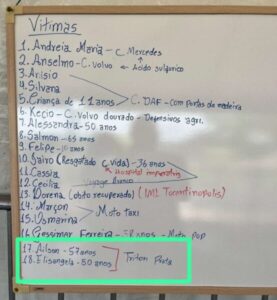 Vítimas
1. Andreia Maria - C. Mercedes
2. Anselmo - C. Volvo ← Ácido sulfúrico
3. Arisio
4. Silvana
5. Criança de 11 anos > C. DAF - Com portas de madeira
6. Kecio - C. Volvo dourado - Defensivos agri.
7. Alessandra - 50 anos
8. Salmon - 65 anos
9. Felipe - 10 anos
10. Jairo (Resgatado c/ vida) - 36 anos
11. Cassia → Hospital imperatriz
12. Cecília Voyage
13. Lorena (obito recuperado) (IML Tocantinópolis)
14. Marçon
15. Osmarina > Moto Taxi
16. Gessimar Ferreira - 38 anos - Moto pop
17. Ailson - 57 anos
18. Elisangela - 50 anos ] Triton Prata